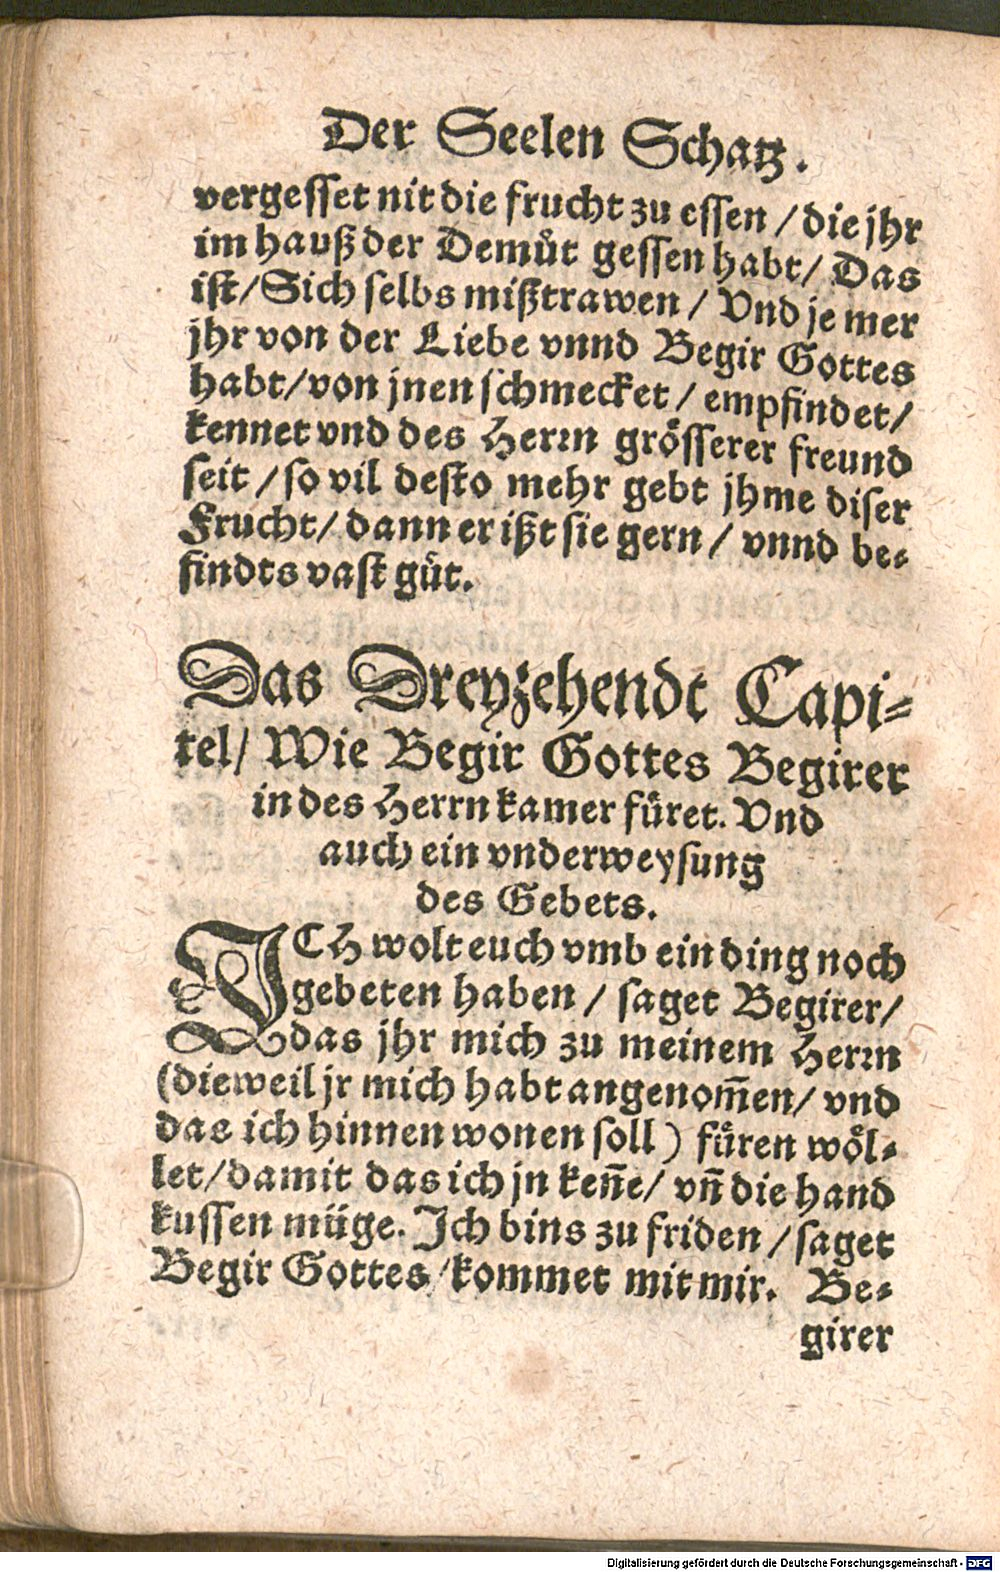 Der Seelen Schatz.
vergesset nit die frucht zu essen / die jhr
im hauß der Demuͤt gessen habt / Das
ist / Sich selbs mißtrawen / Vnd je mer
jhr von der Liebe vnnd Begir Gottes
habt / von jnen schmecket / empfindet /
kennet vnd des Herrn groͤsserer freund
seit / so vil desto mehr gebt jhme diser
Frucht / dann er ißt sie gern / vnnd be-
findts vast guͤt.
Das Dreyzehendt Capi-
tel / Wie Begir Gottes Begirer
in des Herrn kamer fuͤret. Vnd
auch ein vnderweysung
des Gebets.
ICH wolt euch vmb ein ding noch
gebeten haben / saget Begirer /
das jhr mich zu meinem Herrn
(dieweil jr mich habt angenom̄en / vnd
das ich hinnen wonen soll) fuͤren woͤl-
let / damit das ich jn ken̄e / vn̄ die hand
kussen muͤge. Ich bins zu friden / saget
Begir Gottes / kommet mit mir. Be-
girer
Digitalisierung gefördert durch die Deutsche Forschungsgemeinschaft - DFG